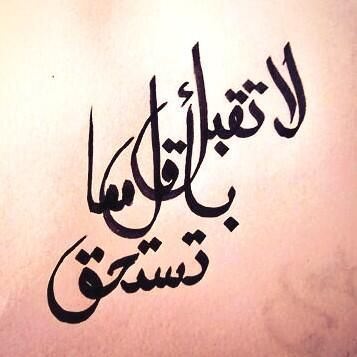 لا تقبل
بأقل مما
تستحق